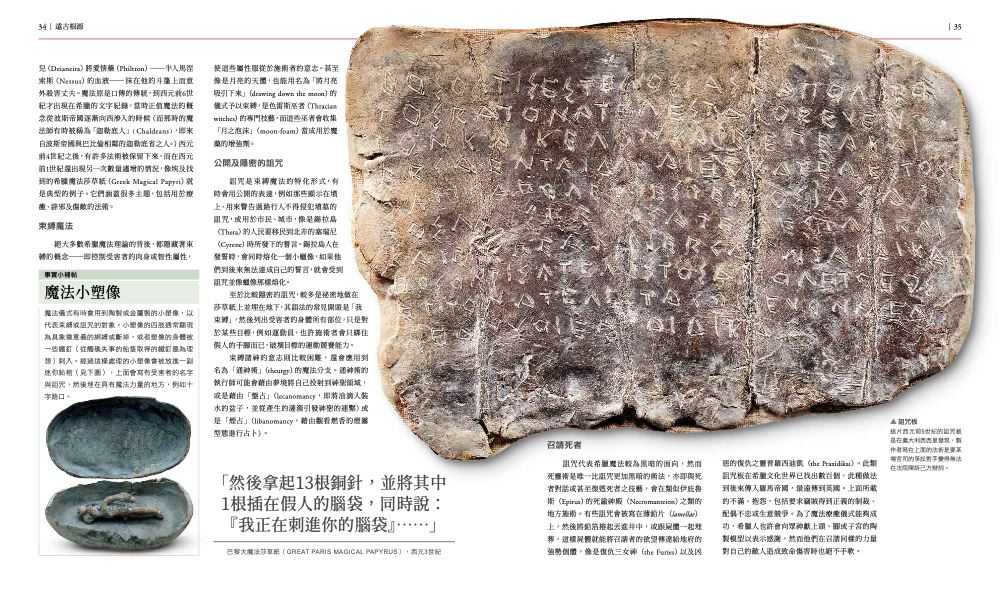 34 | 遠古根源
兒 (Deianeira) 將愛情藥 (Philtron) ──半人馬涅
索斯 (Nessus) 的血液──抹在他的斗篷上而意
外殺害丈夫。魔法原是口傳的傳統,到西元前6世
紀才出現在希臘的文字紀錄,當時正值魔法的概
念從波斯帝國逐漸向西滲入的時候 (而那時的魔
法師有時被稱為「迦勒底人」(Chaldeans),即來
自波斯帝國與巴比倫相鄰的迦勒底省之人。) 西元
前4世紀之後,有許多法術被保留下來,而在西元
前1世紀還出現另一次數量遽增的情況,像埃及找
到的希臘魔法莎草紙 (Greek Magical Papyri) 就
是典型的例子。它們涵蓋很多主題,包括用於療
癒、辟邪及傷敵的法術。
束縛魔法
絕大多數希臘魔法理論的背後,都隱藏著束
縛的概念──即控制受害者的肉身或智性屬性,
事實小補帖
魔法小塑像
魔法儀式有時會用到陶製或金屬製的小塑像,以
代表束縛或詛咒的對象。小塑像的四肢通常顯現
為具象徵意義的綁縛或斷掉,或者塑像的身體被
一些鐵釘 (從觸礁失事的船隻取得的鐵釘最為理
想) 刺入。經過這樣處理的小塑像會被放進一副
迷你鉛棺 (見下圖),上面會寫有受害者的名字
與詛咒,然後埋在具有魔法力量的地方,例如十
字路口。
使這些屬性服從於施術者的意志。甚至
像是月亮的天體,也能用名為「將月亮
吸引下來」(drawing down the moon) 的
儀式予以束縛,是色雷斯巫者 (Thracian
witches) 的專門技藝,而這些巫者會收集
「月之泡沫」(moon-foam) 當成用於魔
藥的增強劑。
公開及隱密的詛咒
詛咒是束縛魔法的特化形式,有
時會用公開的表達,例如那些顯示在墳
上、用來警告過路行人不得侵犯墳墓的
詛咒,或用於市民、城市,像是錫拉島
(Thera) 的人民要移民到北非的塞瑞尼
(Cyrene) 時所發下的誓言。錫拉島人在
發誓時,會同時熔化一個小蠟像,如果他
們到後來無法達成自己的誓言,就會受到
詛咒並像蠟像那樣熔化。
至於比較隱密的詛咒,較多是祕密地做在
莎草紙上並埋在地下,其語法的常見開頭是「我
束縛」,然後列出受害者的身體所有部位,只是對
於某些目標,例如運動員,也許施術者會只縛住
假人的手腳而已,破壞目標的運動競賽能力。
束縛諸神的意志則比較困難,還會應用到
名為「通神術」(theurgy) 的魔法分支。通神術的
執行師可能會藉由夢境將自己投射到神聖領域,
或是藉由「盤占」(lecanomancy,即將油滴入裝
水的盆子,並從產生的漣漪引發神聖的連繫) 或
是「煙占」(libanomancy,藉由觀看燃香的煙霧
型態進行占卜)。
「然後拿起13根銅針,並將其中
1根插在假人的腦袋,同時說:
『我正在刺進你的腦袋』⋯⋯」
巴黎大魔法莎草紙 (GREAT PARIS MAGICAL PAPYRUS),西元3世紀
| 35
▲ 詛咒板
這片西元前5世紀的詛咒板
是在義大利西西里發現,製
作者寫在上面的法術是要某
場官司的爭訟對手變得無法
在法院陳訴己方辯詞。
召請死者
詛咒代表希臘魔法較為黑暗的面向,然而
死靈術是唯一比詛咒更加黑暗的術法,亦即與死
者對話或甚至復甦死者之技藝,會在類似伊庇魯
斯 (Epirus) 的死諭神殿 (Necromanteion) 之類的
地方施術。有些詛咒會被寫在薄鉛片 (lamellae)
上,然後將鉛箔捲起丟進井中,或跟屍體一起埋
葬。這樣屍體就能將召請者的欲望傳達給地府的
強勢個體,像是復仇三女神 (the Furies) 以及凶
惡的復仇之靈普羅西迪凱 (the Praxidikai)。此類
詛咒板在希臘文化世界已找出數百個,此種做法
到後來傳入羅馬帝國,最遠傳到英國。上面所載
的不滿、抱怨,包括要求竊賊得到正義的制裁、
配偶不忠或生意競爭。為了魔法療癒儀式能夠成
功,希臘人也許會向眾神獻上頭、腳或子宮的陶
製模型以表示感謝,然而他們在召請同樣的力量
對自己的敵人造成致命傷害時也絕不手軟。